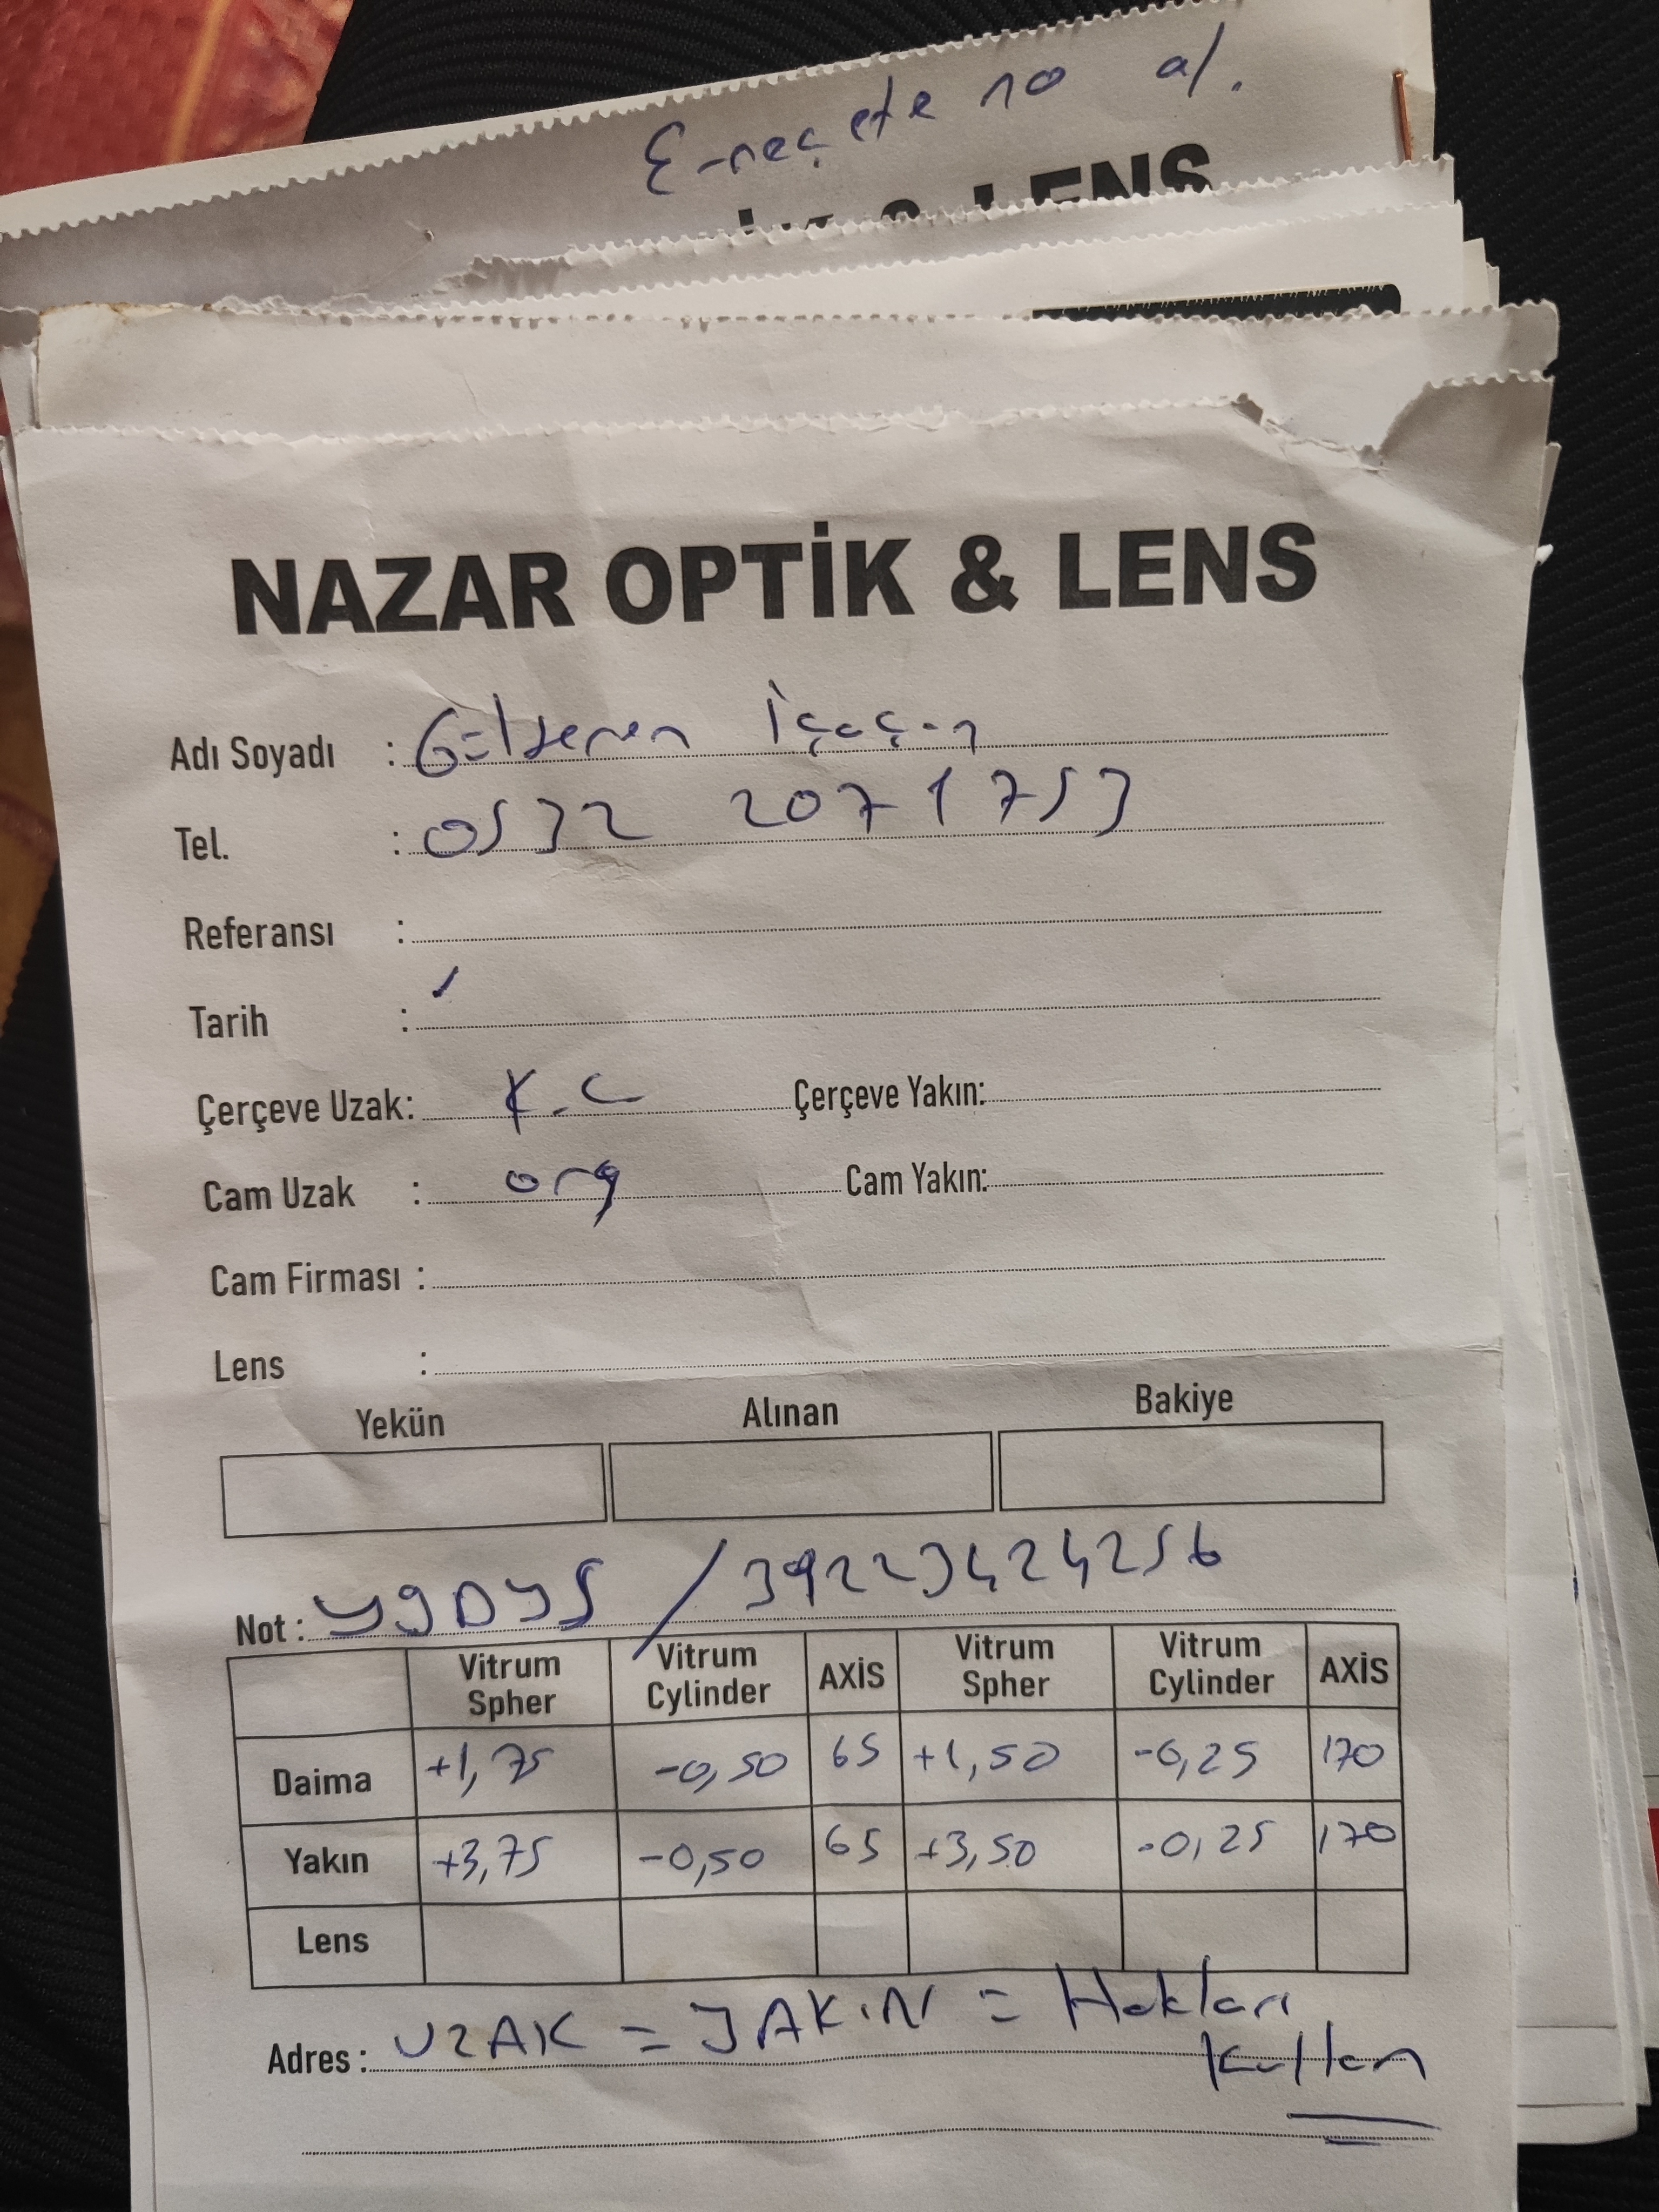 E-reçete no al.
& LENS
NAZAR OPTİK & LENS
Adı Soyadı :
Tel. : 0532 207 1753
Referansı :
Tarih :
Çerçeve Uzak: K.C Çerçeve Yakın:
Cam Uzak : org Cam Yakın:
Cam Firması :
Lens :
Yekün Alınan Bakiye
Not : / 39223424256
Vitrum Spher Vitrum Cylinder AXİS Vitrum Spher Vitrum Cylinder AXİS
Daima +1,75 -0,50 65 +1,50 -0,25 170
Yakın +3,75 -0,50 65 +3,50 -0,25 170
Lens
Adres : UZAK = YAKIN = Hakları
Kullan